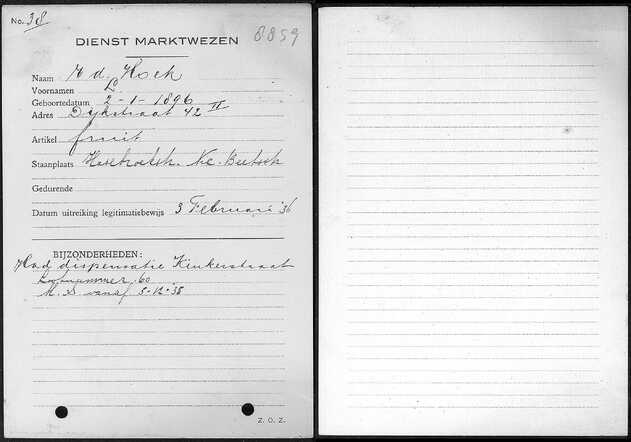 No. 38
8859
DIENST MARKTWEZEN
Naam v d. Hoek
Voornamen L
Geboortedatum 2-1-1896
Adres Dijkstraat 42 II
Artikel fruit
Staanplaats Nic. Beetsstr
Gedurende
Datum uitreiking legitimatiebewijs 3 Februari '36
BIJZONDERHEDEN:
Had dispensatie Kinkerstraat
60
M. S. vanaf 5-12-38
Z. O. Z.